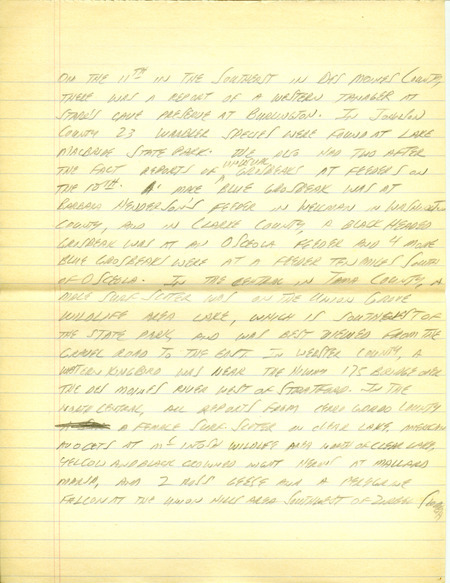 ON THE 11TH IN THE SOUTHEAST IN DES MOINES COUNTY,
THERE WAS A REPORT OF A WESTERN TANAGER AT
STARR'S CAVE PRESERVE AT BURLINGTON. IN JOHNSON
COUNTY 23 WARBLER SPECIES WERE FOUND AT LAKE
MACBRIDE STATE PARK. WE ALSO HAD TWO AFTER
THE FACT REPORTS OF UNUSUAL GROSBEAKS AT FEEDERS ON
THE 10TH. A MALE BLUE GROSBEAK WAS AT
BARBARA HENDERSON'S FEEDER IN WELLMAN IN WASHINGTON
COUNTY, AND IN CLARKE COUNTY, A BLACK HEADED
GROSBEAK WAS AT AN OSCEOLA FEEDER AND 4 MORE
BLUE GROSBEAKS WERE AT A FEEDER TEN MILES SOUTH
OF OSCEOLA. IN THE CENTRAL IN TAMA COUNTY, A
MALE SURF SCOTER WAS ON THE UNION GROVE
WILDLIFE AREA LAKE, WHICH IS SOUTHEAST OF
THE STATE PARK, AND WAS BEST VIEWED FROM THE
GRAVEL ROAD TO THE EAST IN WEBSTER COUNTY, A
WESTERN KINGBIRD WAS NEAR THE HIWAY 175 BRIDGE OVER
THE DES MOINES RIVER WEST OF STRATFORD. IN THE
NORTH CENTRAL, ALL REPORTS FROM CERRO GORDO COUNTY
A FEMALE SURF SCOTER ON CLEAR LAKE, AMERICAN
AVOCETS AT MCINTOSH WILDLIFE AREA NORTH OF CLEAR LAKE,
YELLOW AND BLACK CROWNED NIGHT HERONS AT MALLARD
MARSH, AND 2 ROSS GEESE AND A PEREGRINE
FALCON AT THE UNION HILLS AREA SOUTHWEST OF